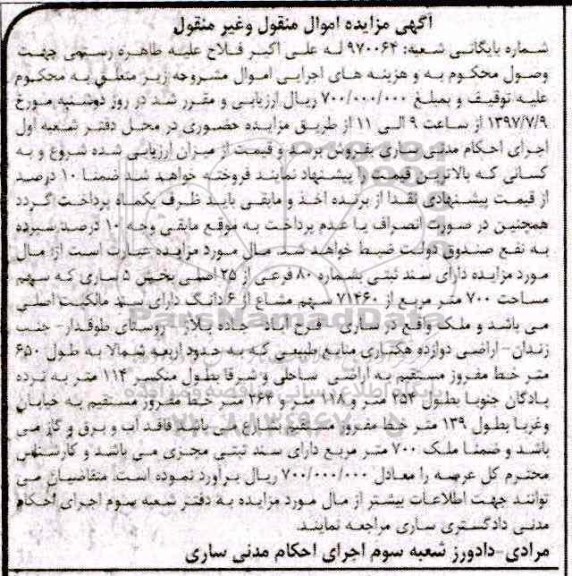 آگهی مزایده اموال منقول وغیر منقول
شماره بایگانی شعبه: ۹۷۰۰۶۴ له علی اکبر فلاح علیه طاهره رستمی جهت
وصول محکوم به و هزینه های اجرایی اموال مشروحه زیر متعلق به محکوم
علیه توقیف و بمبلغ ۷۰۰/۰۰۰/۰۰۰ ریال ارزیابی و مقرر شد در روز دوشنبه مورخ
۱۳۹۷/۷/۹ از ساعت ۹ الی ۱۱ از طریق مزایده حضوری در محل دفتر شعبه اول
اجرای احکام مدنی ساری بفروش برسد و قیمت از میزان ارزیابی شده شروع و به
کسانی که بالاترین قیمت را پیشنهاد نمایند فروخته خواهد شد ضمنا ۱۰ درصد
از قیمت پیشنهادی نقدا از برنده اخذ و مابقی باید ظرف یکماه پرداخت گردد
همچنین در صورت انصراف یا عدم پرداخت به موقع مابقی وجه ۱۰ درصد سپرده
به نفع صندوق دولت ضبط خواهد شد. مال مورد مزایده عبارت است از: مال
مورد مزایده دارای سند ثبتی بشماره ۸۰ فرعی از ۲۵ اصلی بخش ۵ ساری که سهم
مساحت ۷۰۰ متر مربع از ۷۱۴۶۰ سهم مشاع از ۶ دانگ دارای سند مالکیت اصلی
می باشد و ملک واقع در ساری - فرح آباد- جاده پلاژ- روستای طوقدار- جنب
زندان- اراضی دوازده هکتاری منابع طبیعی که به حدود اربعه شمالا به طول ۶۵۰
متر خط مفروز مستقیم به اراضی ساحلی و شرقا بطول منکسر ۱۱۴ متر به نرده
پادگان جنوبا بطول ۲۵۴ متر و ۱۱۸ متر و ۲۶۴ متر خط مفروز مستقیم به خیابان
وغربا بطول ۱۳۹ متر خط مفروز مستقیم بشارع می باشد فاقد آب و برق و گاز می
باشد و ضمنا ملک ۷۰۰ متر مربع دارای سند ثبتی مجزی می باشد و کارشناس
محترم کل عرصه را معادل ۷۰۰/۰۰۰/۰۰۰ ریال برآورد نموده است. متقاضیان می
توانند جهت اطلاعات بیشتر از مال مورد مزایده به دفتر شعبه سوم اجرای احکام
مدنی دادگستری ساری مراجعه نمایند.
مرادی-دادورز شعبه سوم اجرای احکام مدنی ساری
ParsNamadData